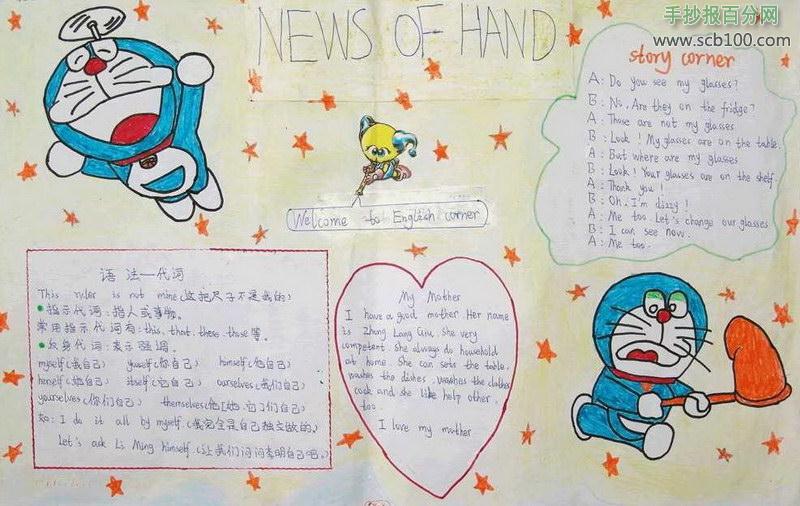 手抄报百分网
www.scb100.com
NEWS OF HAND
story corner
A: Do you see my glasses?
B: No. Are they on the fridge?
A: Those are not my glasses
B: Look! My glasses are on the table.
A: But where are my glasses
B: Look! Your glasses are on the shelf.
A: Thank you!
B: Oh, I'm dizzy!
A: Me too. Let's change our glasses
B: I can see now.
A: Me too.
Welcome to English corner
语法一代词
This ruler is not mine (这把尺子不是我的)
指示代词:指人或事物。
常用指示代词有:this, that, these, those等。
反身代词:表示强调。
myself (我自己) yuself (你自己) himself (他自己)
herself (她自己) itself (它自己) ourselves (我们自己)
yourselves (你们自己) themselves (他[她、它]们自己)
如: I do it all by myself. (我完全是自己独立做的。)
Let's ask Li Ming himself. (让我们问问李明自己吧。)
My Mother
I have a good mother. Her name
is Zhang Lang Giu. She very
competent she always do household
at home. She can sets the table,
washes the dishes, washes the clothes
cook and she like help other,
too.
I love my mother